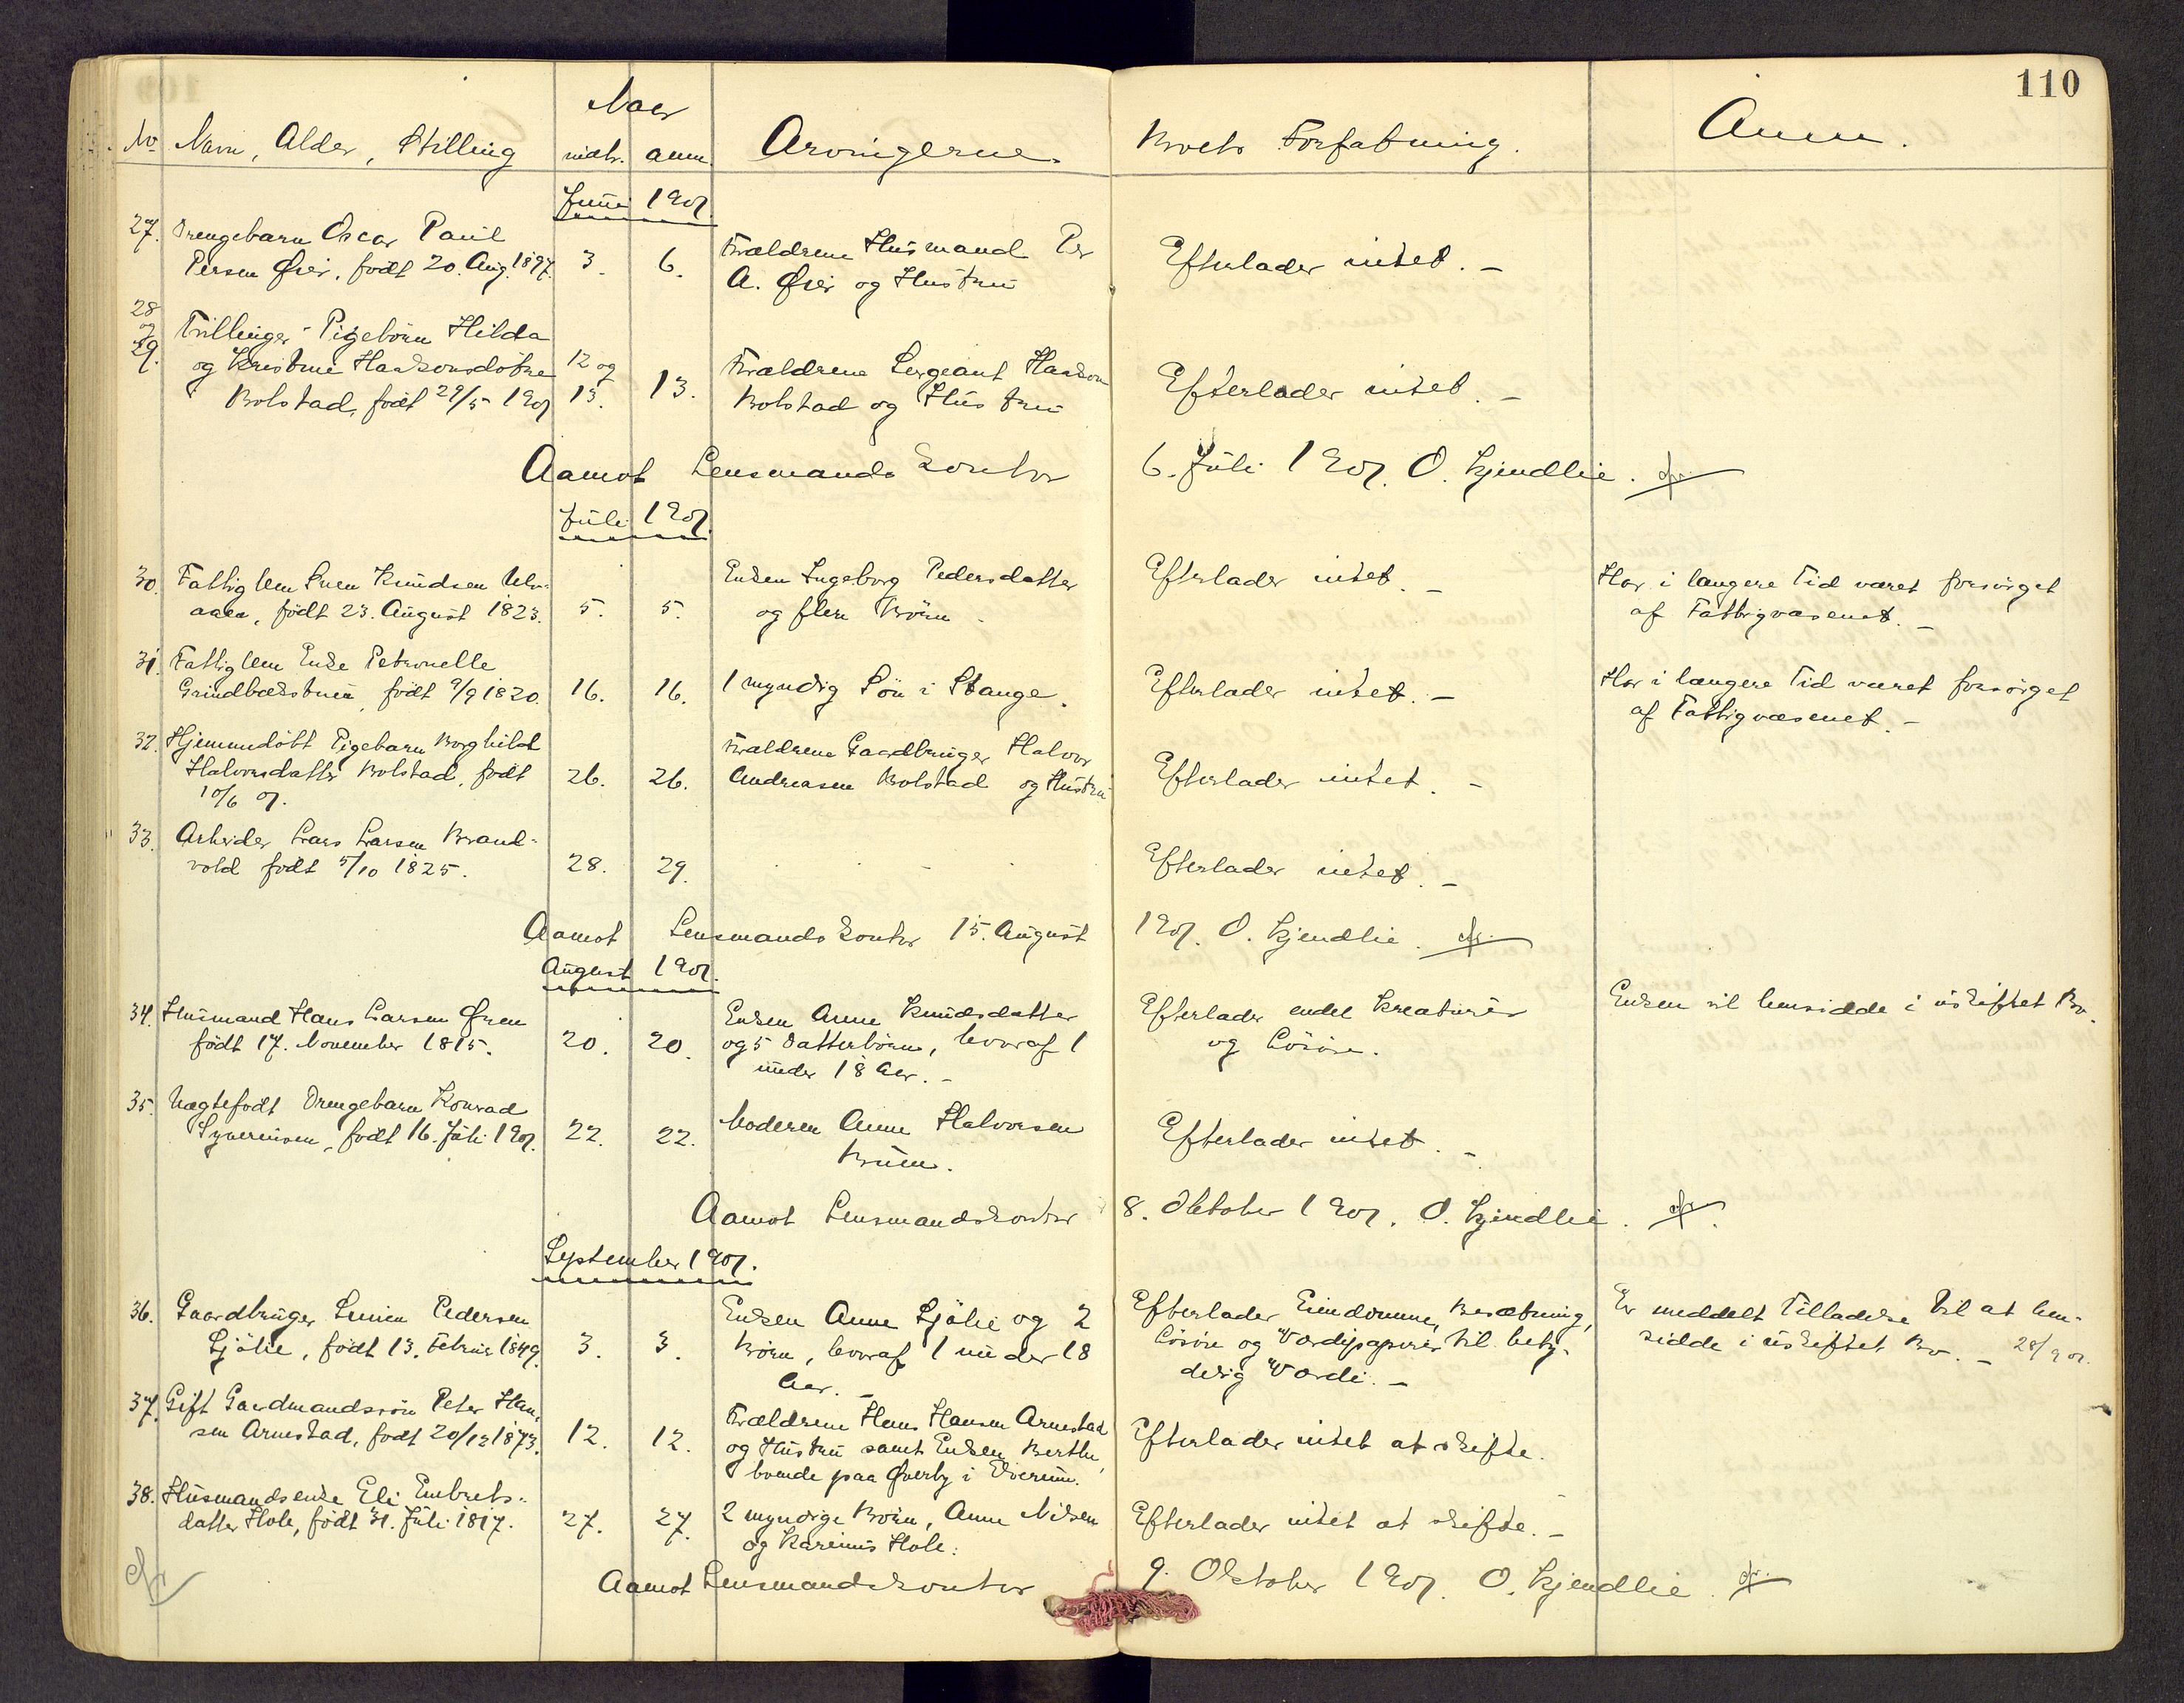 110
Naar
No Navn, Alder, Stilling
indtr. anm.
Arvingerne.
Boets Forfatning.
Anm.
Juni 1901.
27. Drengebarn Oscar Paul
Persen Øien, født 20. Aug. 1897.
3. 6.
Forældrene Husmand Per
A. Øien og Hustru
Efterlader intet. –
28 og 29. Tvillinger Pigebørn Hilda
og Kristine Haakonsdøtre
Bolstad, født 29/5 1901
12 og
13. 13.
Forældrene Sergeant Haakon
Bolstad og Hustru
Efterlader intet. –
Aamot Lensmandskontor 6. Juli 1901. O. Kjendlie.
Juli 1901.
30. Fattiglem Knudsen
født 23. August 1823.
5. 5.
Enken Ingeborg Pedersdatter
og flere Børn
Efterlader intet. –
Har i længere Tid været forsørget
af Fattigvæsenet. –
31. Fattiglem Enke Petronelle
Grindbakstuen, født 9/9 1820.
16. 16.
1 myndig Søn i Stange.
Efterlader intet. –
Har i længere Tid været forsørget
af Fattigvæsenet. –
32. Hjemmedøbt Pigebarn Borghild
Halvorsdatter Bolstad, født
10/6 01.
26. 26.
Forældrene Gaardbruger Halvor
Andreasen Bolstad og Hustru
Efterlader intet. –
33. Arbeider Lars Larsen Brand-
vold født 5/10 1825.
28. 29.
Efterlader intet. –
Aamot Lensmandskontor 15. August 1901. O. Kjendlie.
August 1901.
34. Husmand Hans Larsen Øren
født 17. November 1815.
20. 20.
Enken Anne Knudsdatter
og 5 Datterbørn, hvoraf 1
under 18 Aar. –
Efterlader endel Kreaturer
og Løsøre.
Enken vil hensidde i uskiftet Bo.
35. Uægtefødt Drengebarn Konrad
Syverinsen, født 16. Juli 1901.
22. 22.
Moderen Anne Halvorsen
Bruen.
Efterlader intet. –
Aamot Lensmandskontor 8. Oktober 1901. O. Kjendlie.
September 1901.
36. Gaardbruger Simen Pedersen
Sjølie, født 13. Februar 1849.
3. 3.
Enken Anne Sjølie og 2
Børn, hvoraf 1 under 18
Aar. –
Efterlader Eiendomme, Besætning,
Løsøre og Værdipapirer til bety-
delig Værdi. –
Er meddelt Tilladelse til at hen-
sidde i uskiftet Bo. – 28/9 01.
37. Gift Gaardmandssøn Peter Han-
sen Arnestad, født 20/12 1873.
12. 12.
Forældrene Hans Hansen Arnestad
og Hustru samt Enken Berthe,
boende paa Øverby i Elverum.
Efterlader intet at skifte.
38. Husmandsenke Eli Embrets-
datter Hole, født 31. Juli 1817.
27. 27.
2 myndige Børn, Anne Nilsen
og Karinus Hole.
Efterlader intet at skifte. –
Aamot Lensmandskontor 9. Oktober 1901. O. Kjendlie.